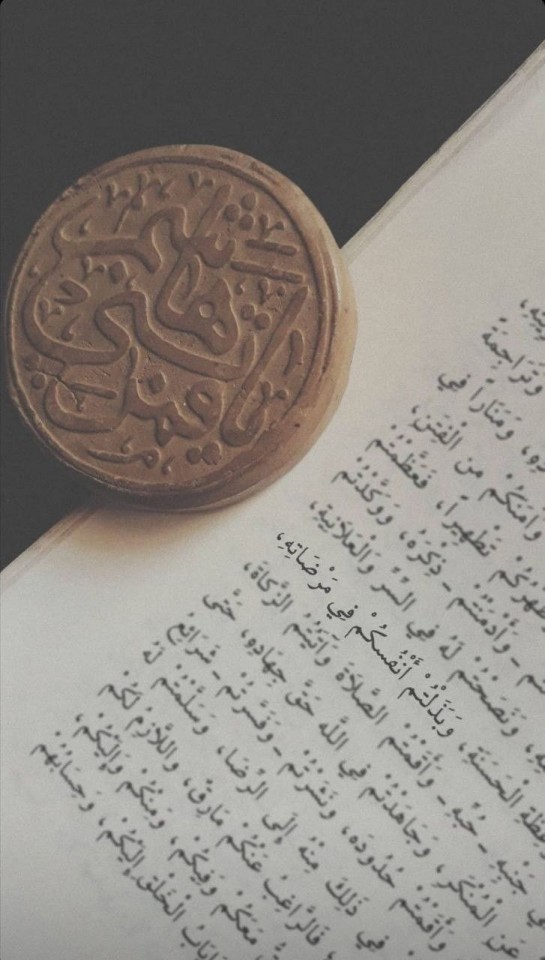 يا قمر بني هاشم
وَتَرَاجِمَةً
وَمَنَاراً فِي
وَآمَنَكُمْ مِنَ الْفِتَنِ،
وَطَهَّرَكُمْ تَطْهِيراً، فَعَظَّمْتُمْ
- وَأَدْمَنْتُمْ - ذِكْرَهُ، وَوَكَّدْتُمْ
وَنَصَحْتُمْ لَهُ فِي السِّرِّ وَالْعَلَانِيَةِ،
الْحَسَنَةِ، وَبَذَلْتُمْ أَنْفُسَكُمْ فِي مَرْضَاتِهِ،
فِي جَنْبِهِ - حُبِّهِ - وَأَقَمْتُمُ الصَّلَاةَ وَآتَيْتُمُ الزَّكَاةَ،
عَنِ الْمُنْكَرِ، وَجَاهَدْتُمْ فِي اللَّهِ حَقَّ جِهَادِهِ، حَتَّى
وَأَقَمْتُمْ حُدُودَهُ، وَنَشَرْتُمْ - وَفَسَّرْتُمْ - شَرَائِعَ
فِي ذَلِكَ مِنْهُ إِلَى الرِّضَا، وَسَلَّمْتُمْ لَهُ
فَالرَّاغِبُ عَنْكُمْ مَارِقٌ، وَاللَّازِمُ لَكُمْ
مَعَكُمْ وَفِيكُمْ، وَمِنْكُمْ وَإِلَيْكُمْ،
الْخَلْقِ إِلَيْكُمْ، وَحِسَابُهُمْ